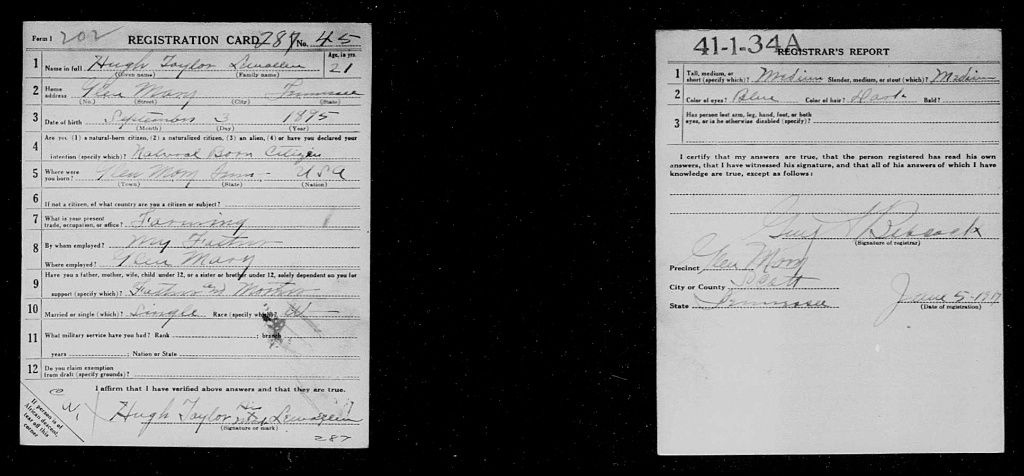 Form 1 202 REGISTRATION CARD 287 No. 45
1 Name in full Hugh Taylor Lewallen Age, in yrs. 21
(Given name) (Family name)
2 Home address Glen Mary Tennessee
(No.) (Street) (City) (State)
3 Date of birth September 3 1895
(Month) (Day) (Year)
4 Are you (1) a natural-born citizen, (2) a naturalized citizen, (3) an alien, (4) or have you declared your
intention (specify which)? Natural Born Citizen
5 Where were you born? Glen Mary Tenn. - USA
(Town) (State) (Nation)
6 If not a citizen, of what country are you a citizen or subject?
7 What is your present trade, occupation, or office? Farming
8 By whom employed? My Father
Where employed? Glen Mary
9 Have you a father, mother, wife, child under 12, or a sister or brother under 12, solely dependent on you for
support (specify which)? Father and Mother
10 Married or single (which)? Single Race (specify which)? W
11 What military service have you had? Rank ; branch
years ; Nation or State
12 Do you claim exemption from draft (specify grounds)?
I affirm that I have verified above answers and that they are true.
Hugh Taylor His X Mark Lewallen
(Signature or mark)
If person is of African descent, tear off this corner
287
41-1-34A
REGISTRAR'S REPORT
1 Tall, medium, or short (specify which)? Medium Slender, medium, or stout (which)? Medium
2 Color of eyes? Blue Color of hair? Dark Bald?
3 Has person lost arm, leg, hand, foot, or both
eyes, or is he otherwise disabled (specify)?
I certify that my answers are true, that the person registered has read his own
answers, that I have witnessed his signature, and that all of his answers of which I have
knowledge are true, except as follows:
(Signature of registrar)
Precinct Glen Mary
City or County Scott
State Tennessee June 5-1917
(Date of registration)